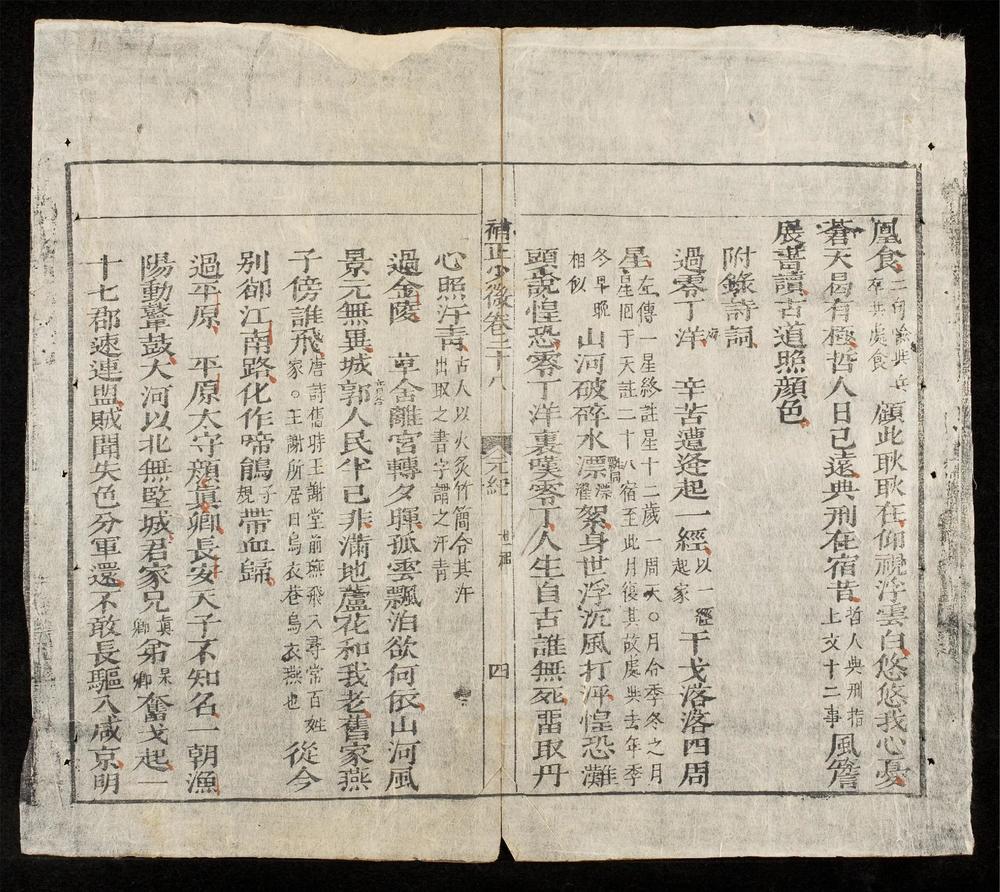 凰食二句喻與兵卒共處食顧此耿耿在仰視浮雲白悠悠我心憂
蒼天曷有極哲人日已遠典刑在宿昔哲人典刑指上文十二事風簷
展書讀古道照顏色
附錄詩詞
過零丁洋　辛苦遭逢起一經以一經起家干戈落落四周
星左傳一星終註星十二歲一周天○月令季冬之月星回于天註二十八宿至此月復其故處與去年季
冬早晚相似山河破碎水漂絮身世浮沉風打泙惶恐灘
頭說惶恐零丁洋裏嘆零丁人生自古誰無死畱取丹
補正少微卷二十八　元紀　世祖　四
心照汗青古人以火炙竹簡令其汗出取之書字謂之汗青
過金陵　草舍離宮轉夕暉孤雲飄泊欲何依山河風
景元無異城郭人民半已非滿地蘆花和我老舊家燕
子傍誰飛唐詩舊時王謝堂前燕飛入尋常百姓家○王謝所居曰烏衣巷烏衣燕也從今
別卻江南路化作啼鵑子規帶血歸
過平原　平原太守顏真卿長安天子不知名一朝漁
陽動鼙鼓大河以北無堅城君家兄真卿弟杲卿奮戈起一
十七郡速連盟賊聞失色分軍還不敢長驅入咸京明